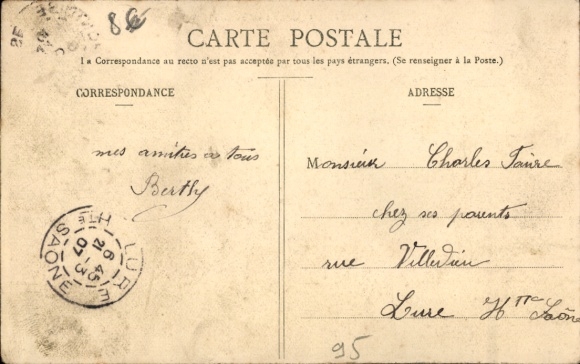 86
CARTE POSTALE
La Correspondance au recto n'est pas acceptée par tous les pays étrangers. (Se renseigner à la Poste.)
CORRESPONDANCE
ADRESSE
mes amitiés à tous
Berthy
Monsieur Charles Faivre
chez ses parents
rue Villedieu
Lure Hte Saône
LURE
HTE SAONE
6 45
21 - 3
07
95